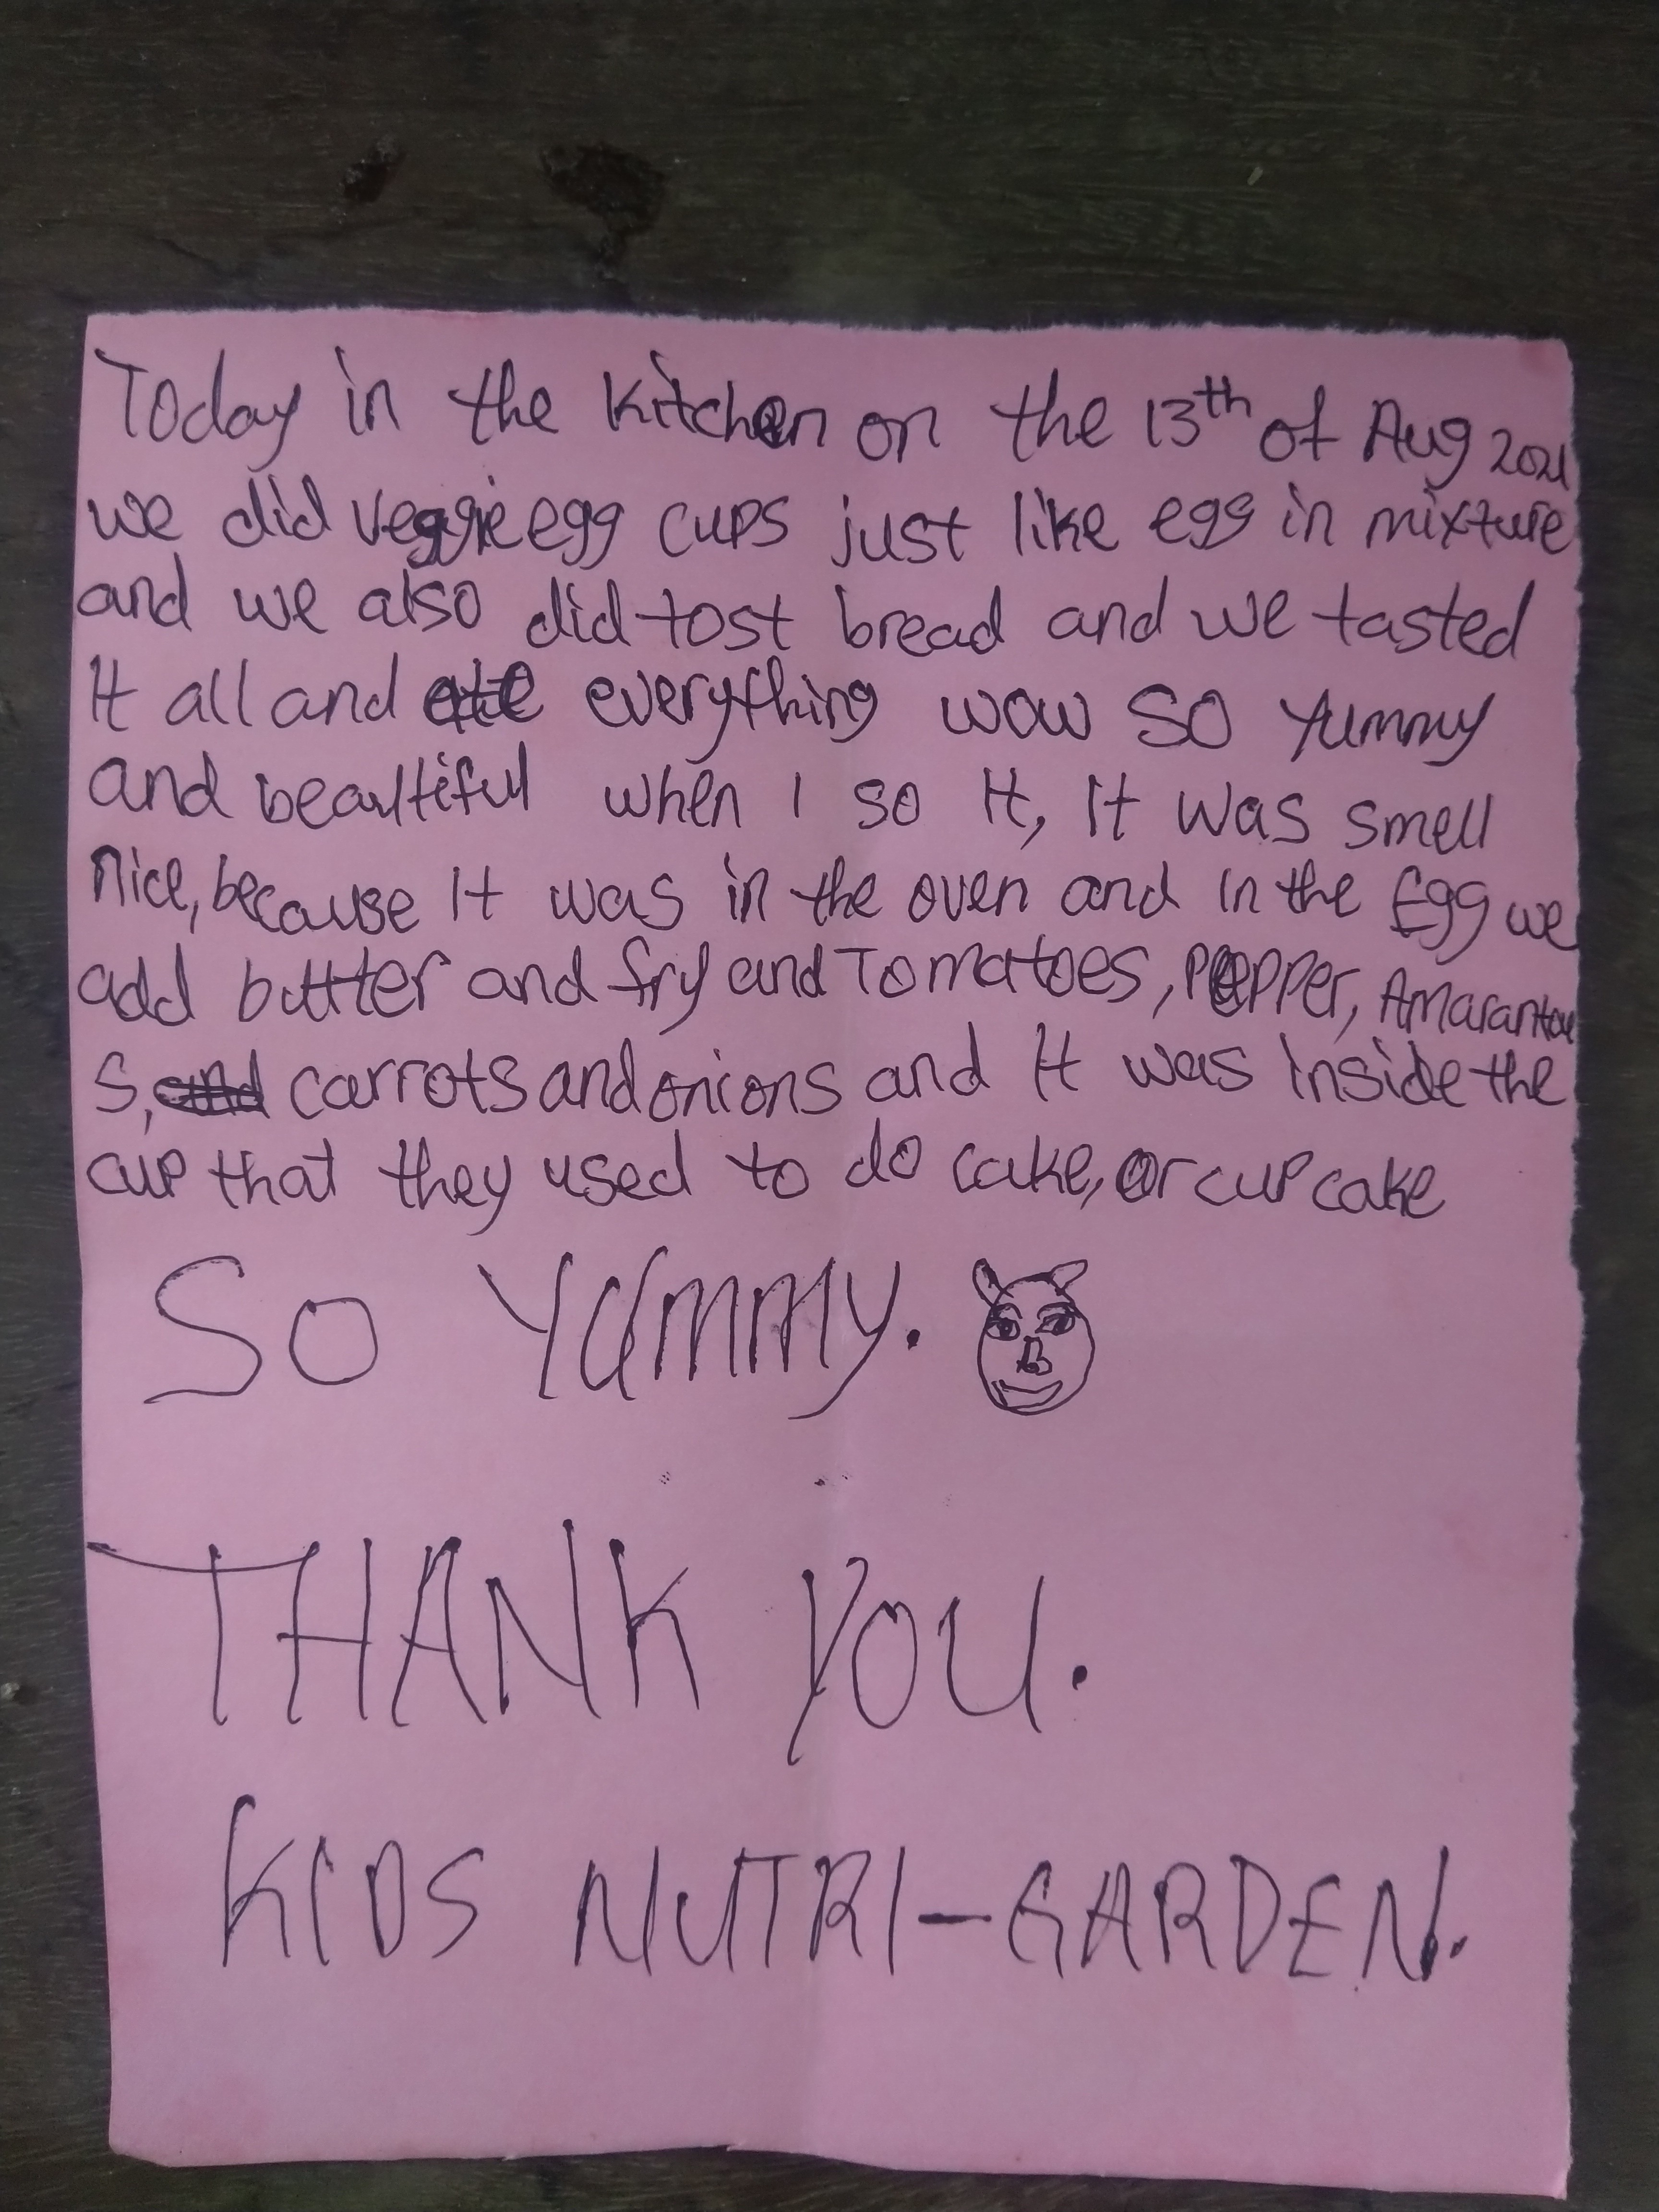 Today in the Kitchen on the 13th of Aug 2021
we did veggie egg cups just like egg in mixture
and we also did tost bread and we tasted
It all and ate everything wow so yummy
and beaultiful when I so It, It was smell
nice, because It was in the oven and in the Egg we
add buttter and fry and Tomatoes, Pepper, Amarantou
s, and carrots and onions and It was Inside the
cup that they used to do cake, or cup cake
So Yummy.
THANK YOU.
KIDS NUTRI-GARDEN.